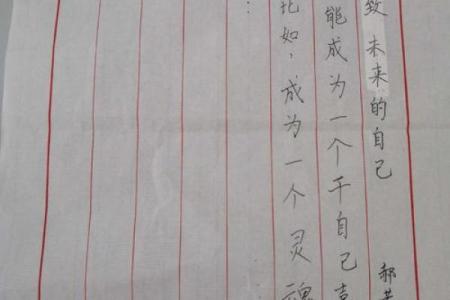 致 未来的自己
郝
能成为一个干自己喜
比如，成为一个灵魂
：